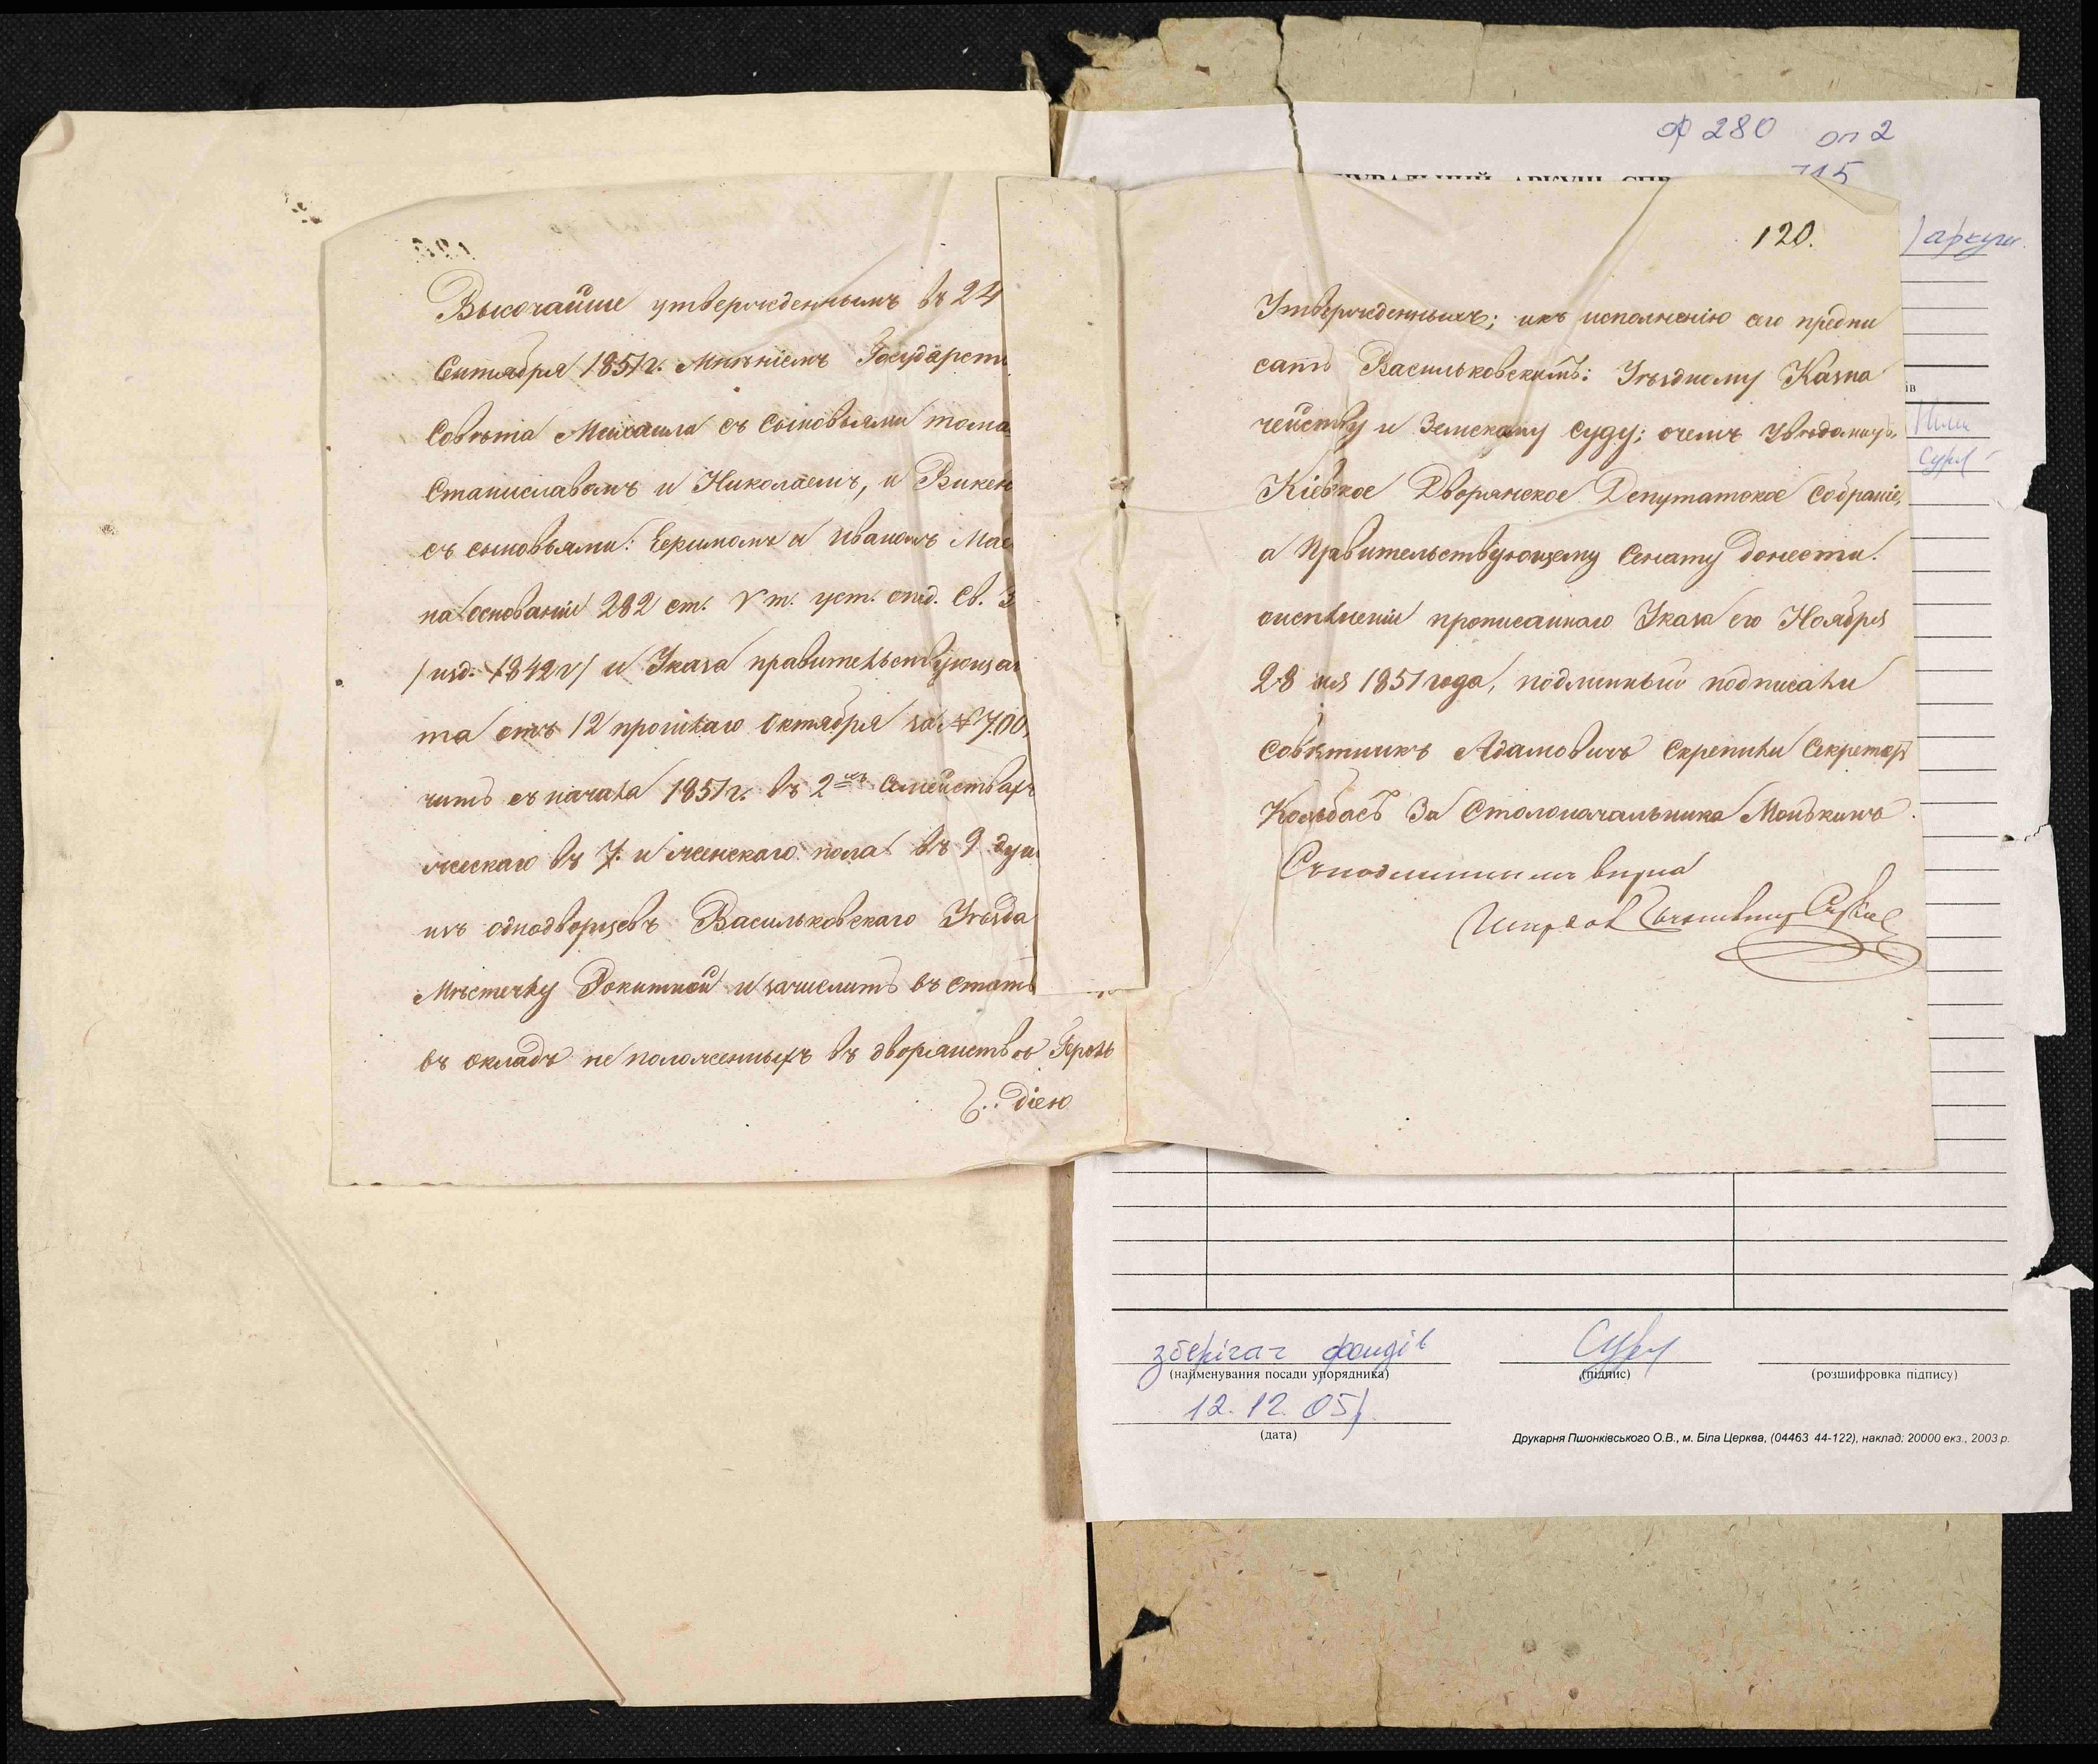 Высочайше утвержденнымъ въ 24
Сентября 1851 г. Мнѣніемъ Государств
Совѣта Михаила съ сыновьями тома
Станиславомъ и Николаемъ, и Викен
съ сыновьями: и Иваномъ
на основаніи 282 ст. V т. уст. Св. З
/изд. 1842 г/ и Указа правительствующа
та отъ 12 прошлаго Октября за № 7.00
чить съ начала 1851 г. въ 2хъ семействахъ
жескаго въ 7. и женскаго пола въ 9 душ
изъ однодворцевъ Васильковскаго Уѣзда
Мѣстечку Рокитной и зачислить въ
въ окладъ не положенныхъ въ дворянствѣ Герол
діею
120.
Утвержденныхъ; икъ исполненію его предпи
сать Васильковскимъ: Уѣздному Казна
чейству и Земскому суду; очемъ увѣдомить
Кіевское Дворянское Депутатское Собраніе,
а Правительствующему Сенату донести.
прописаннаго Указа его Ноября
28 дня 1851 года, подлинный подписали
Совѣтникъ Адамовичъ Скрепили Секретарь
За Столоначальника
Съ подлиннымъ вѣрна
ф 280 оп 2
715
аркуш
зберігач фондів
(найменування посади упорядника)
(підпис)
(розшифровка підпису)
12.12.05р
(дата)
Друкарня Пшонківського О.В., м. Біла Церква, (04463 44-122), наклад: 20000 екз., 2003 р.